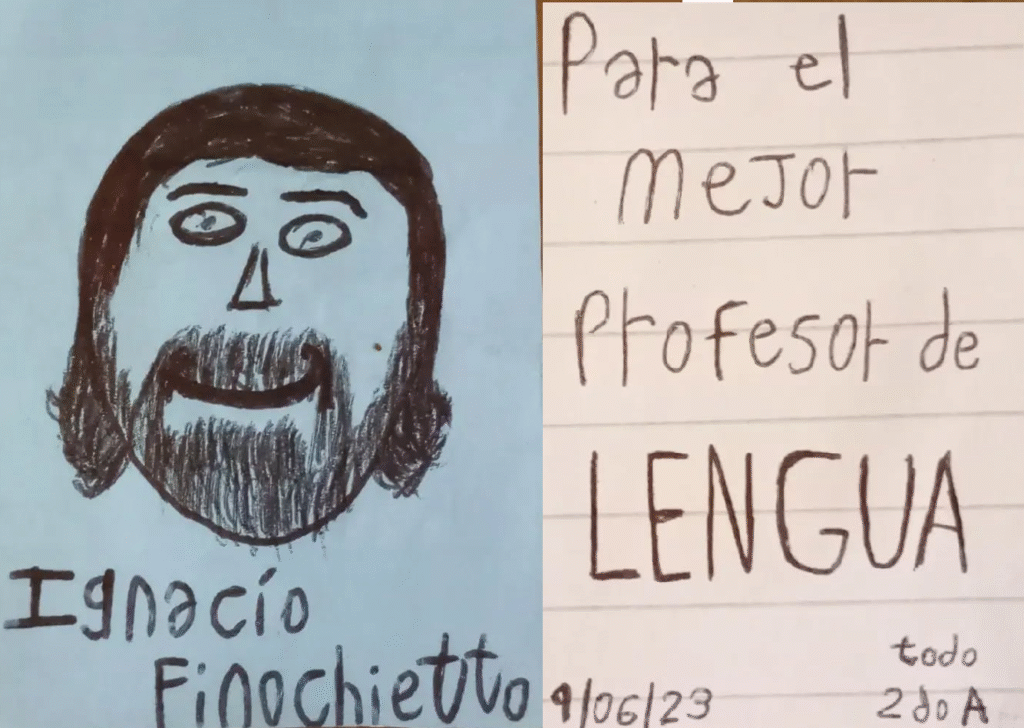 Ignacío
Finochietto
Para el
mejor
Profesor de
LENGUA
todo
9/06/23 2do A